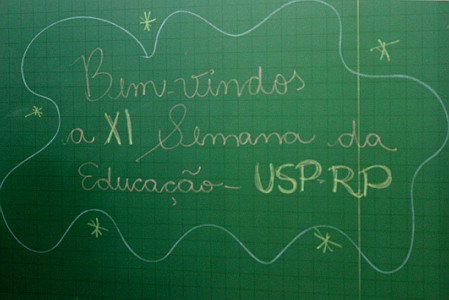 Bem-vindos
a XI Semana da
Educação - USP-RP